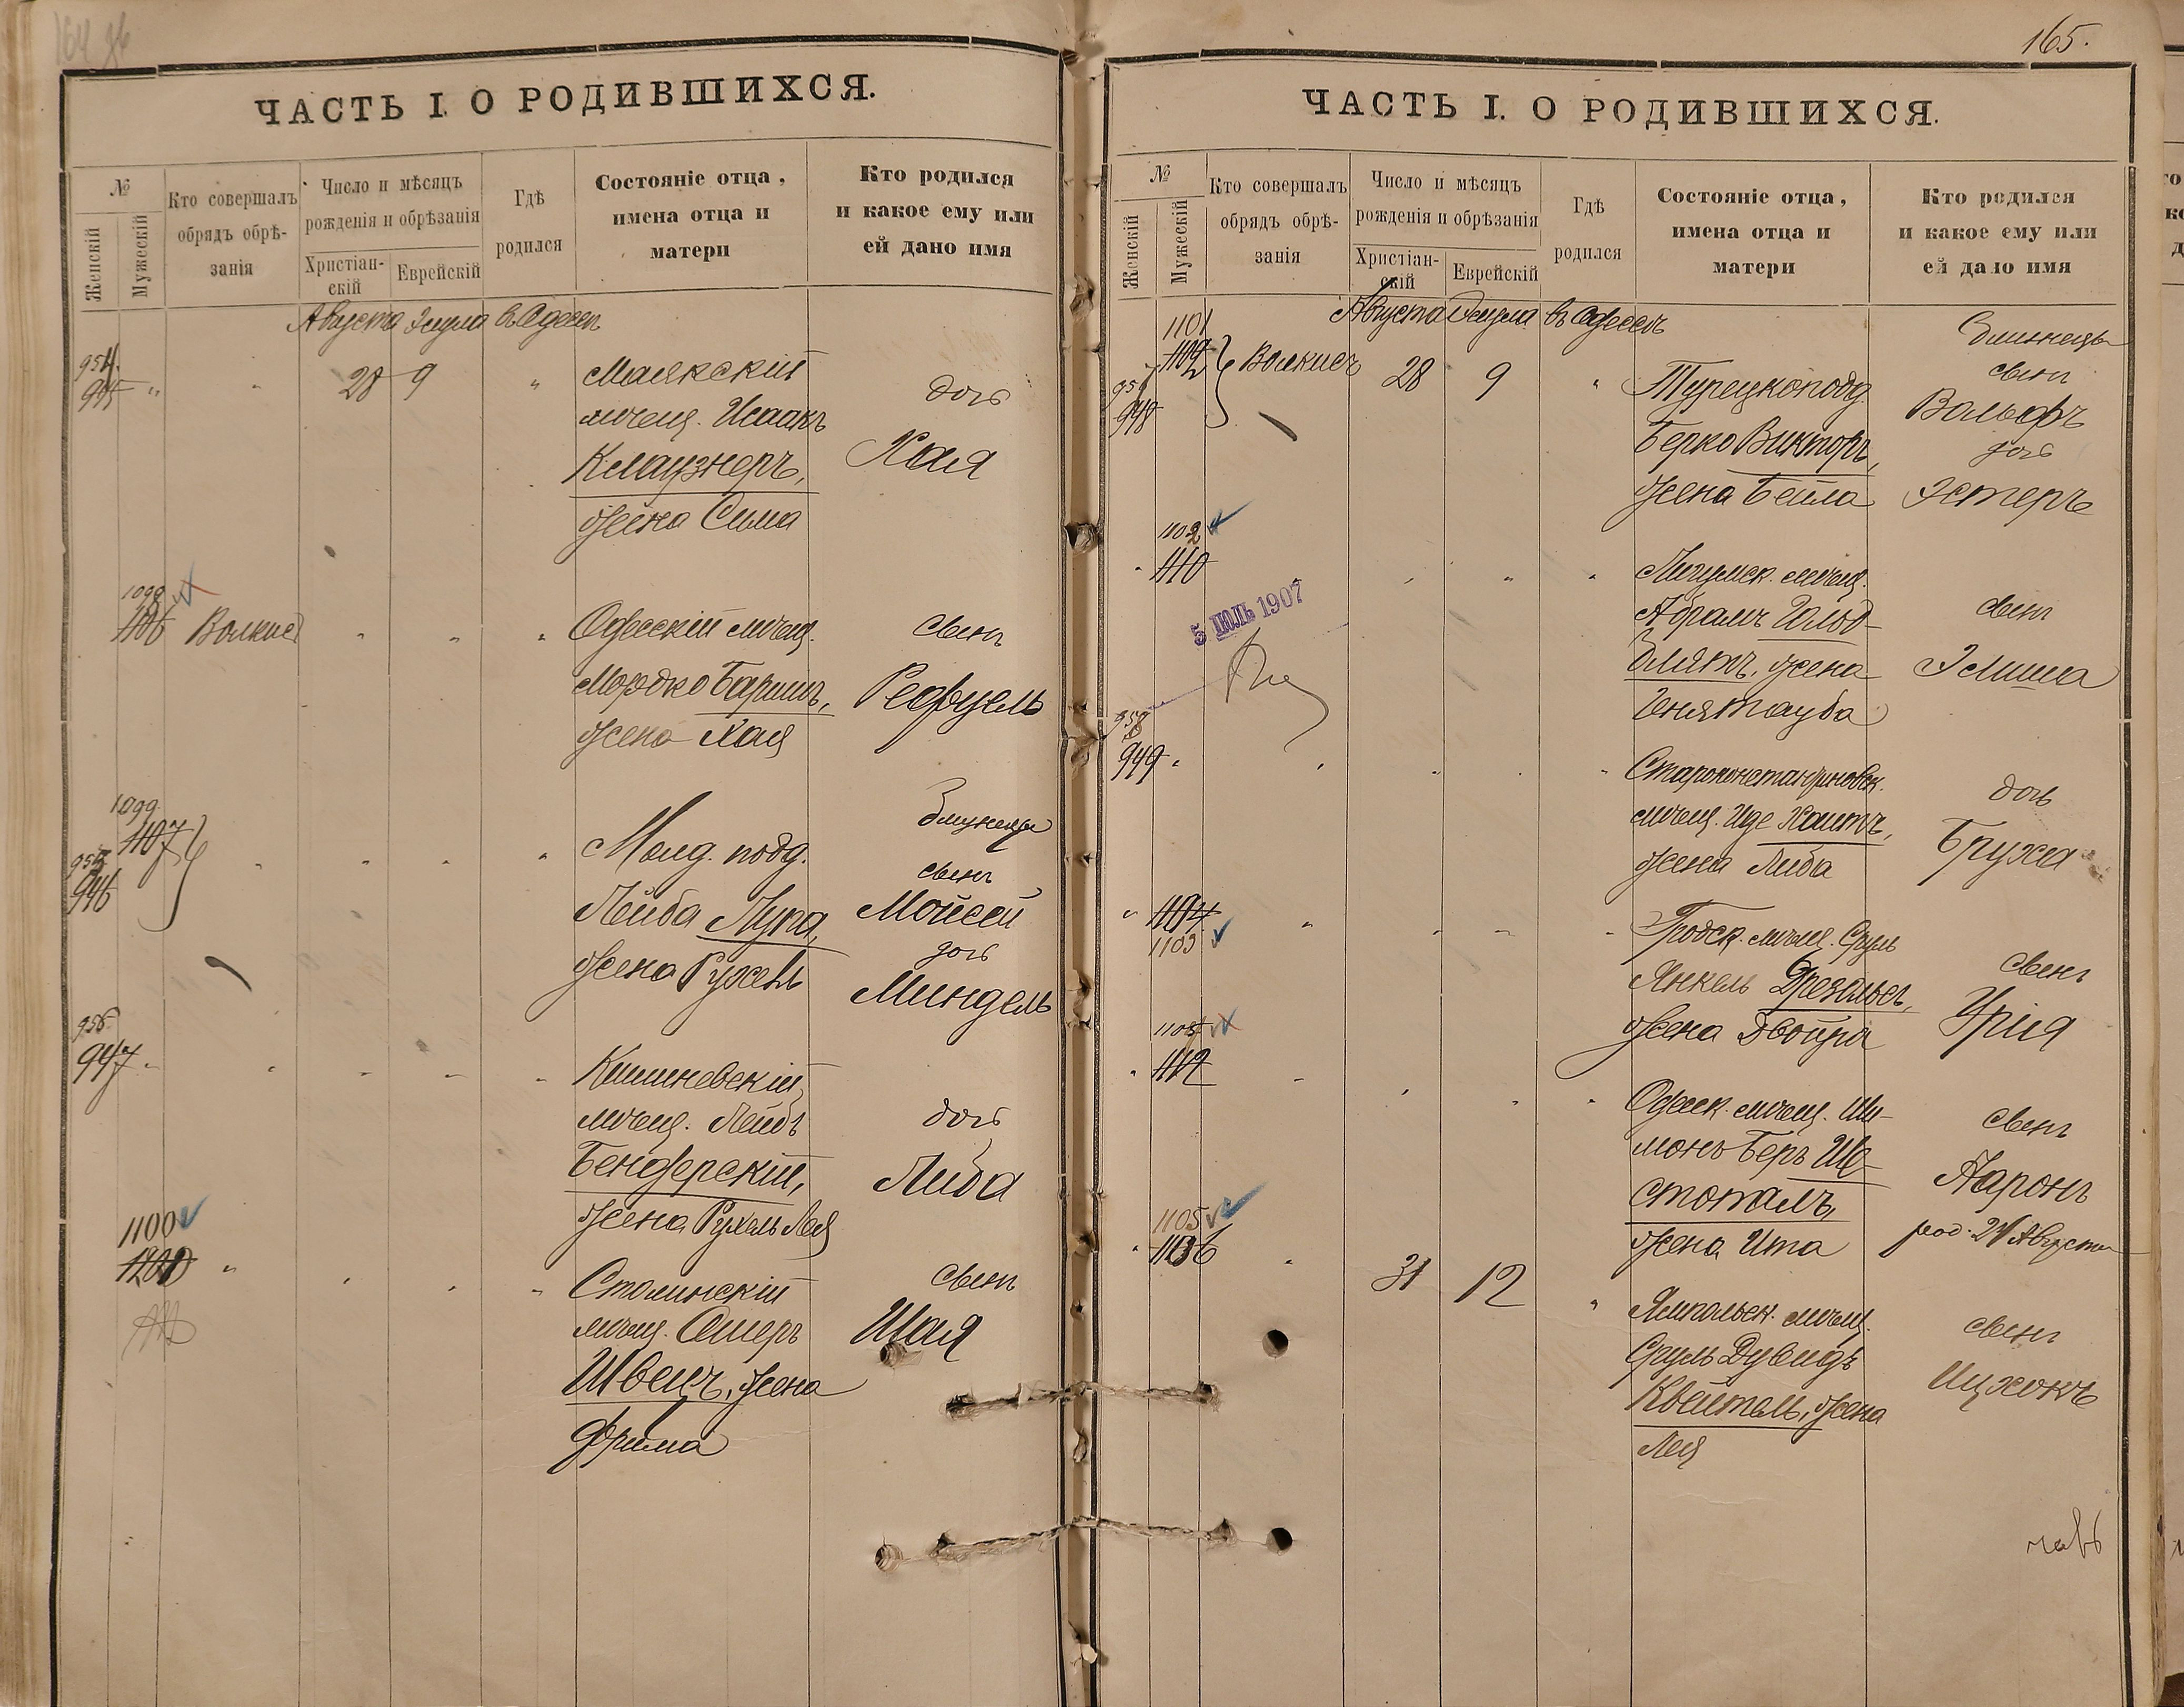 165.
ЧАСТЬ I. О РОДИВШИХСЯ.
№
Женскій
Мужескій
Кто совершалъ
обрядъ обрѣ-
занія
Число и мѣсяцъ
рожденія и обрѣзанія
Христіан-
скій
Еврейскій
Гдѣ
родился
Состояніе отца,
имена отца и
матери
Кто родился
и какое ему или
ей дано имя
Августа Элула въ Одессѣ
954
945 " " 28 9 "
Маякскій
мѣщ. Исаакъ
Клаузнеръ,
жена Сима
дочь
Хая
1098
1106 Волкисъ
Одесскій мѣщ.
Мордко Баришъ,
жена Хая
сынъ
Рефуель
1099
1107
955
946
Молд. подд.
Лейба Лупа,
жена Рухель
близнецы
сынъ
Мойсей
дочь
Миндель
956
947
Кишиневскій
мѣщ. Лейбъ
Бендерскій,
жена Рухель Лея
дочь
Либа
1100
Столинскій
мѣщ. Ошеръ
Швецъ, жена
Фрима
сынъ
Шая
ЧАСТЬ I. О РОДИВШИХСЯ.
№
Женскій
Мужескій
Кто совершалъ
обрядъ обрѣ-
занія
Число и мѣсяцъ
рожденія и обрѣзанія
Христіан-
скій
Еврейскій
Гдѣ
родился
Состояніе отца,
имена отца и
матери
Кто родился
и какое ему или
ей дано имя
Августа Элула въ Одессѣ
1101
1109
957
948
Волкисъ 28 9 "
Турецкопод.
Берко Викторъ,
жена Бейла
близнецы
сынъ
Вольфъ
дочь
Эстеръ
1102
1110
5 ІЮЛЬ 1907
мѣщ.
Абрамъ Голод-
блятъ, жена
Геня Тауба
сынъ
Элиша
958
949
Староконстантиновск.
мѣщ. Иде Хаитъ,
жена Либа
дочь
Бруха
1103
Гродск. мѣщ. Сруль
Янкель
жена Двойра
сынъ
Урія
1104
1112
Одесск. мѣщ. Ши-
монъ Беръ Ше-
стопалъ,
жена Ита
сынъ
Аронъ
род. 21 Августа
1105
31 12 "
Ямпольск. мѣщ.
Сруль Дувидъ
Квейтель, жена
Лея
сынъ
Ицхокъ